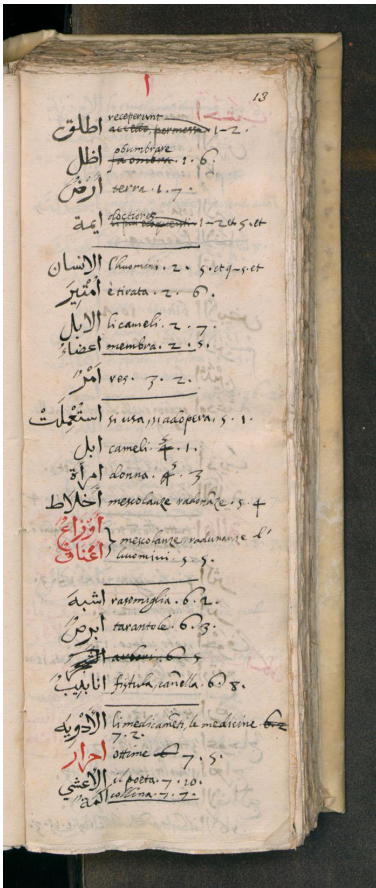 ا
13
اطلق receperunt
accolto, permesso 1-2.
اظل obumbrare
fa ombra. 1. 6.
ارضٌ terra. 1. 7.
ايمة doctiores
1-2 et. 5. et
الانسان l'huomini. 2. 5. et 9-5. et
è tirata. 2. 6.
الابل li cameli. 2. 7.
اعضاء membra. 2. 5.
امرٌ res. 3. 2.
استعملت si usa, si adopera, 5. 1.
ابل cameli. 4. 1.
امراة donna. 4. 3
اخلاط mescolanze radonanze. 5. 4
اوزاع
اعناق } mescolanze, radunanze d'
huomini. 5. 5.
اشبه rasomiglia. 6. 2.
ابرصٌ tarantole. 6. 3.
arbori. 6. 5
انابيبٌ fistula, cannella. 6. 8.
الادويه li medicamenti, le medicine 6. 2
7. 2.
احرار ottime 6 7. 5.
الاعشي il poeta. 7. 10.
اكمة collina. 7. 7.